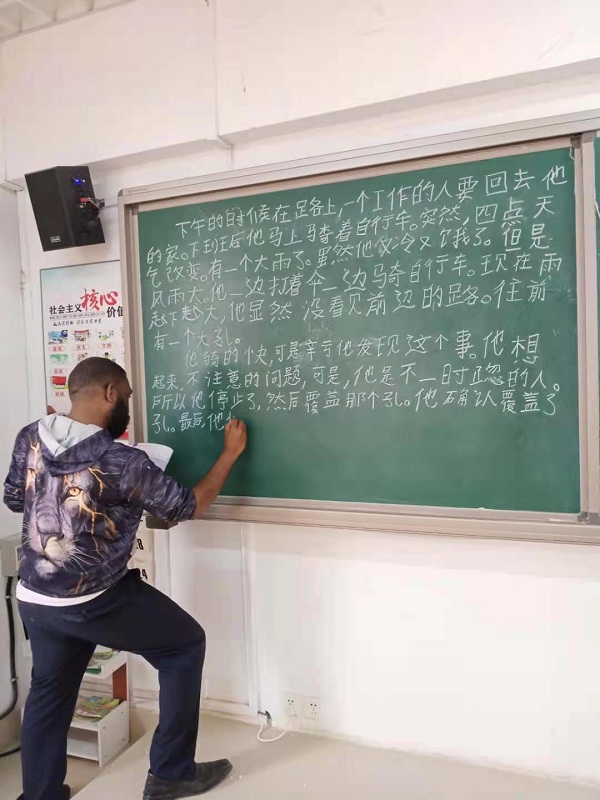 下午的时候在路上,一个工作的人要回去他
的家。下班后他马上骑着自行车。突然,四点天
气改变。有一个大雨了。虽然他又冷又饿了。但是
风雨大。他一边打着伞一边骑自行车。现在雨
越下越大,他显然没看见前边的路。往前
有一个大孔。
他骑的快,可是幸亏他发现这个事。他想
起来,不注意的问题,可是,他是不一时疏忽的人。
所以他停止了,然后覆盖那个孔。他确认覆盖了
孔。最后,他
社会主义核心
价值